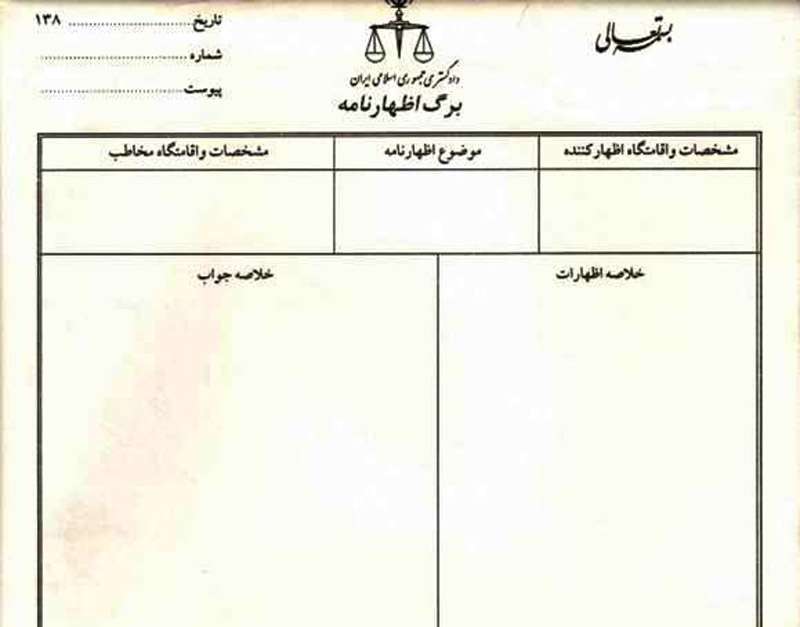 بسمه تعالی
تاریخ ........................ ۱۳۸
شماره ........................
پیوست ........................
دادگستری جمهوری اسلامی ایران
برگ اظهارنامه
مشخصات و اقامتگاه اظهارکننده
موضوع اظهارنامه
مشخصات و اقامتگاه مخاطب
خلاصه اظهارات
خلاصه جواب